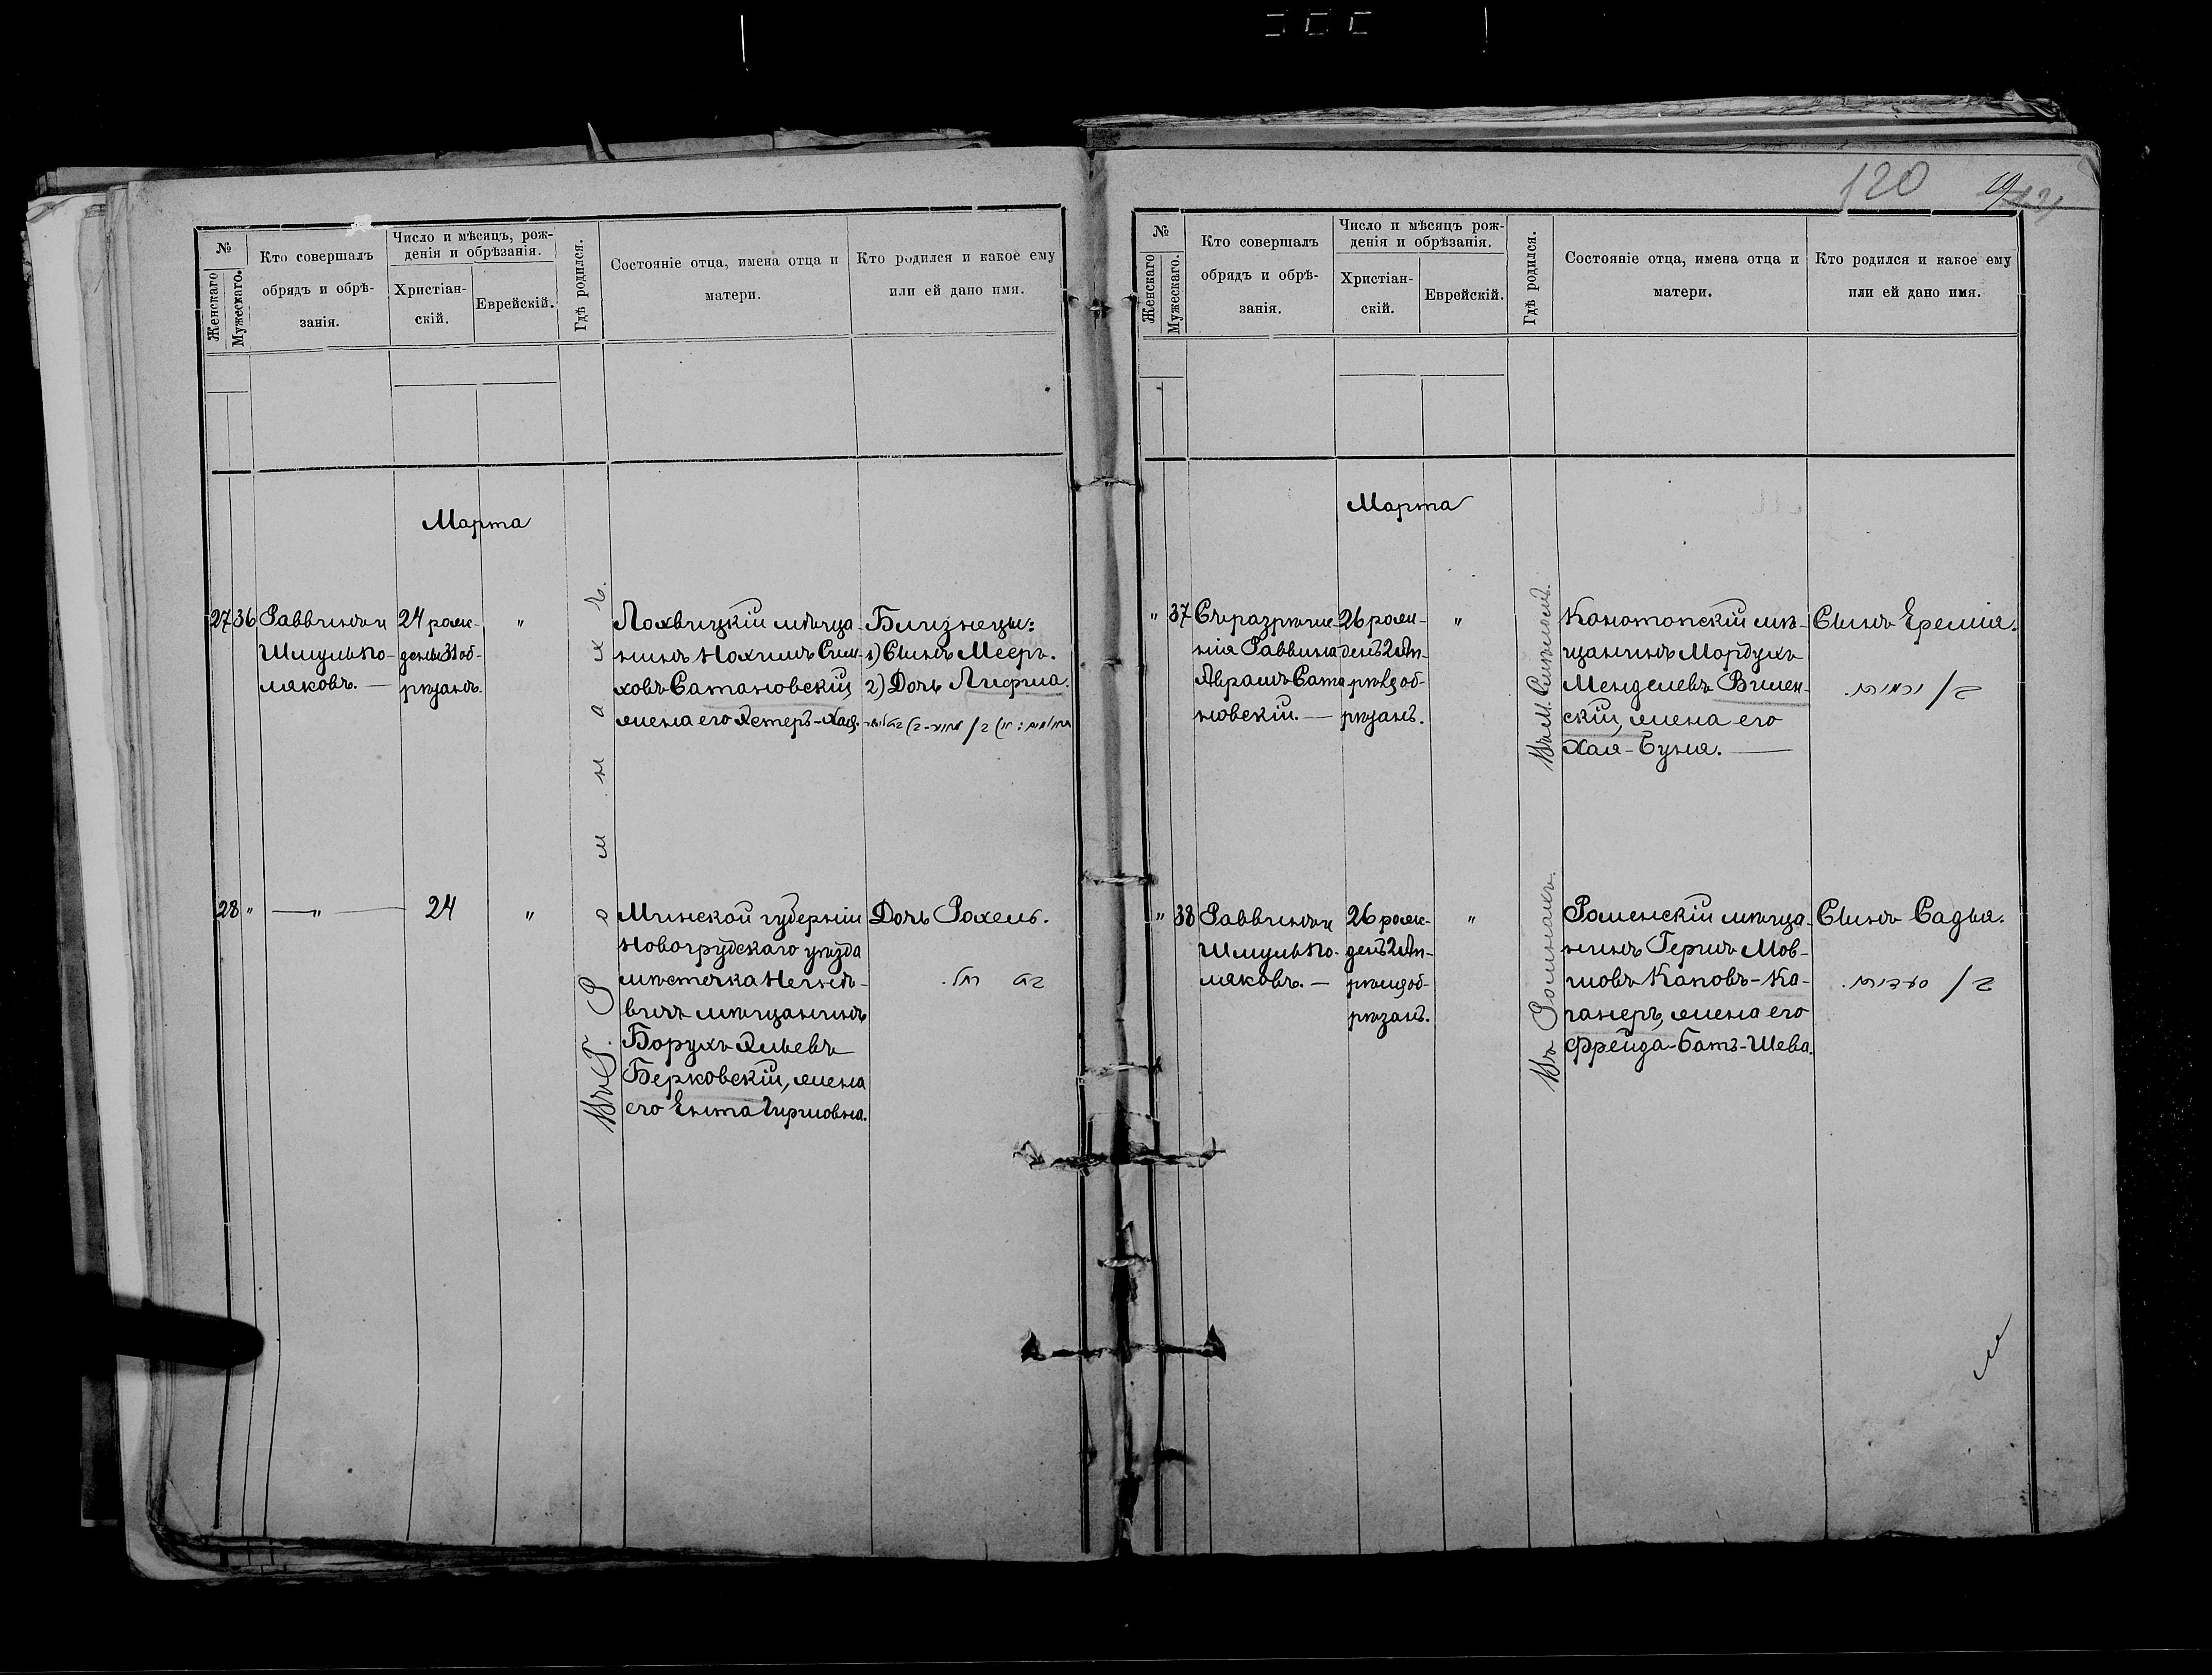 120
№
Женскаго
Мужескаго.
Кто совершалъ
обрядъ и обрѣ-
занія.
Число и мѣсяцъ, рож-
денія и обрѣзанія.
Христіан-
скій.
Еврейскій.
Гдѣ родился.
Состояніе отца, имена отца и
матери.
Кто родился и какое ему
или ей дано имя.
Марта
27 36
Раввинъ и
Шмуль По-
ляковъ. —
24 рож-
дены 31 об-
рѣзанъ.
"
Въ Г. Ромнахъ.
Лохвицкій мѣща-
нинъ Нохимъ Сим-
ховъ Сатановскій
жена его Эстеръ-Хая.
Близнецы:
1) Сынъ Мееръ.
2) Дочь Лифша.
28 "
— " —
24
"
Минской губерніи
Новогрудскаго уѣзда
мѣстечка Негнѣ-
вичъ мѣщанинъ
Борухъ Эльевъ
Берковскій, жена
его Ента Гиршовна.
Дочь Рохель.
בת רחל.
№
Женскаго
Мужескаго.
Кто совершалъ
обрядъ и обрѣ-
занія.
Число и мѣсяцъ рож-
денія и обрѣзанія.
Христіан-
скій.
Еврейскій.
Гдѣ родился.
Состояніе отца, имена отца и
матери.
Кто родился и какое ему
или ей дано имя.
Марта
" 37
Съ разрѣше-
нія Раввина
Абрамъ Сата-
новскій. —
26 рож-
денъ 2 Ап-
рѣля об-
рѣзанъ.
"
Въ М. Смѣломъ.
Конотопскій мѣ-
щанинъ Мордухъ
Менделевъ Вилен-
скій, жена его
Хая-Буня. —
Сынъ Еремія.
ב/ ירמיה.
" 38
Раввинъ и
Шмуль По-
ляковъ. —
26 рож-
денъ 2 Ап-
рѣля об-
рѣзанъ.
"
Въ Ромнахъ.
Роменскій мѣща-
нинъ Гершъ Мов-
шовъ Каповъ-Ка-
ганеръ, жена его
Фрейда-Батъ-Шева.
Сынъ Садья.
ב/ סעדיה.